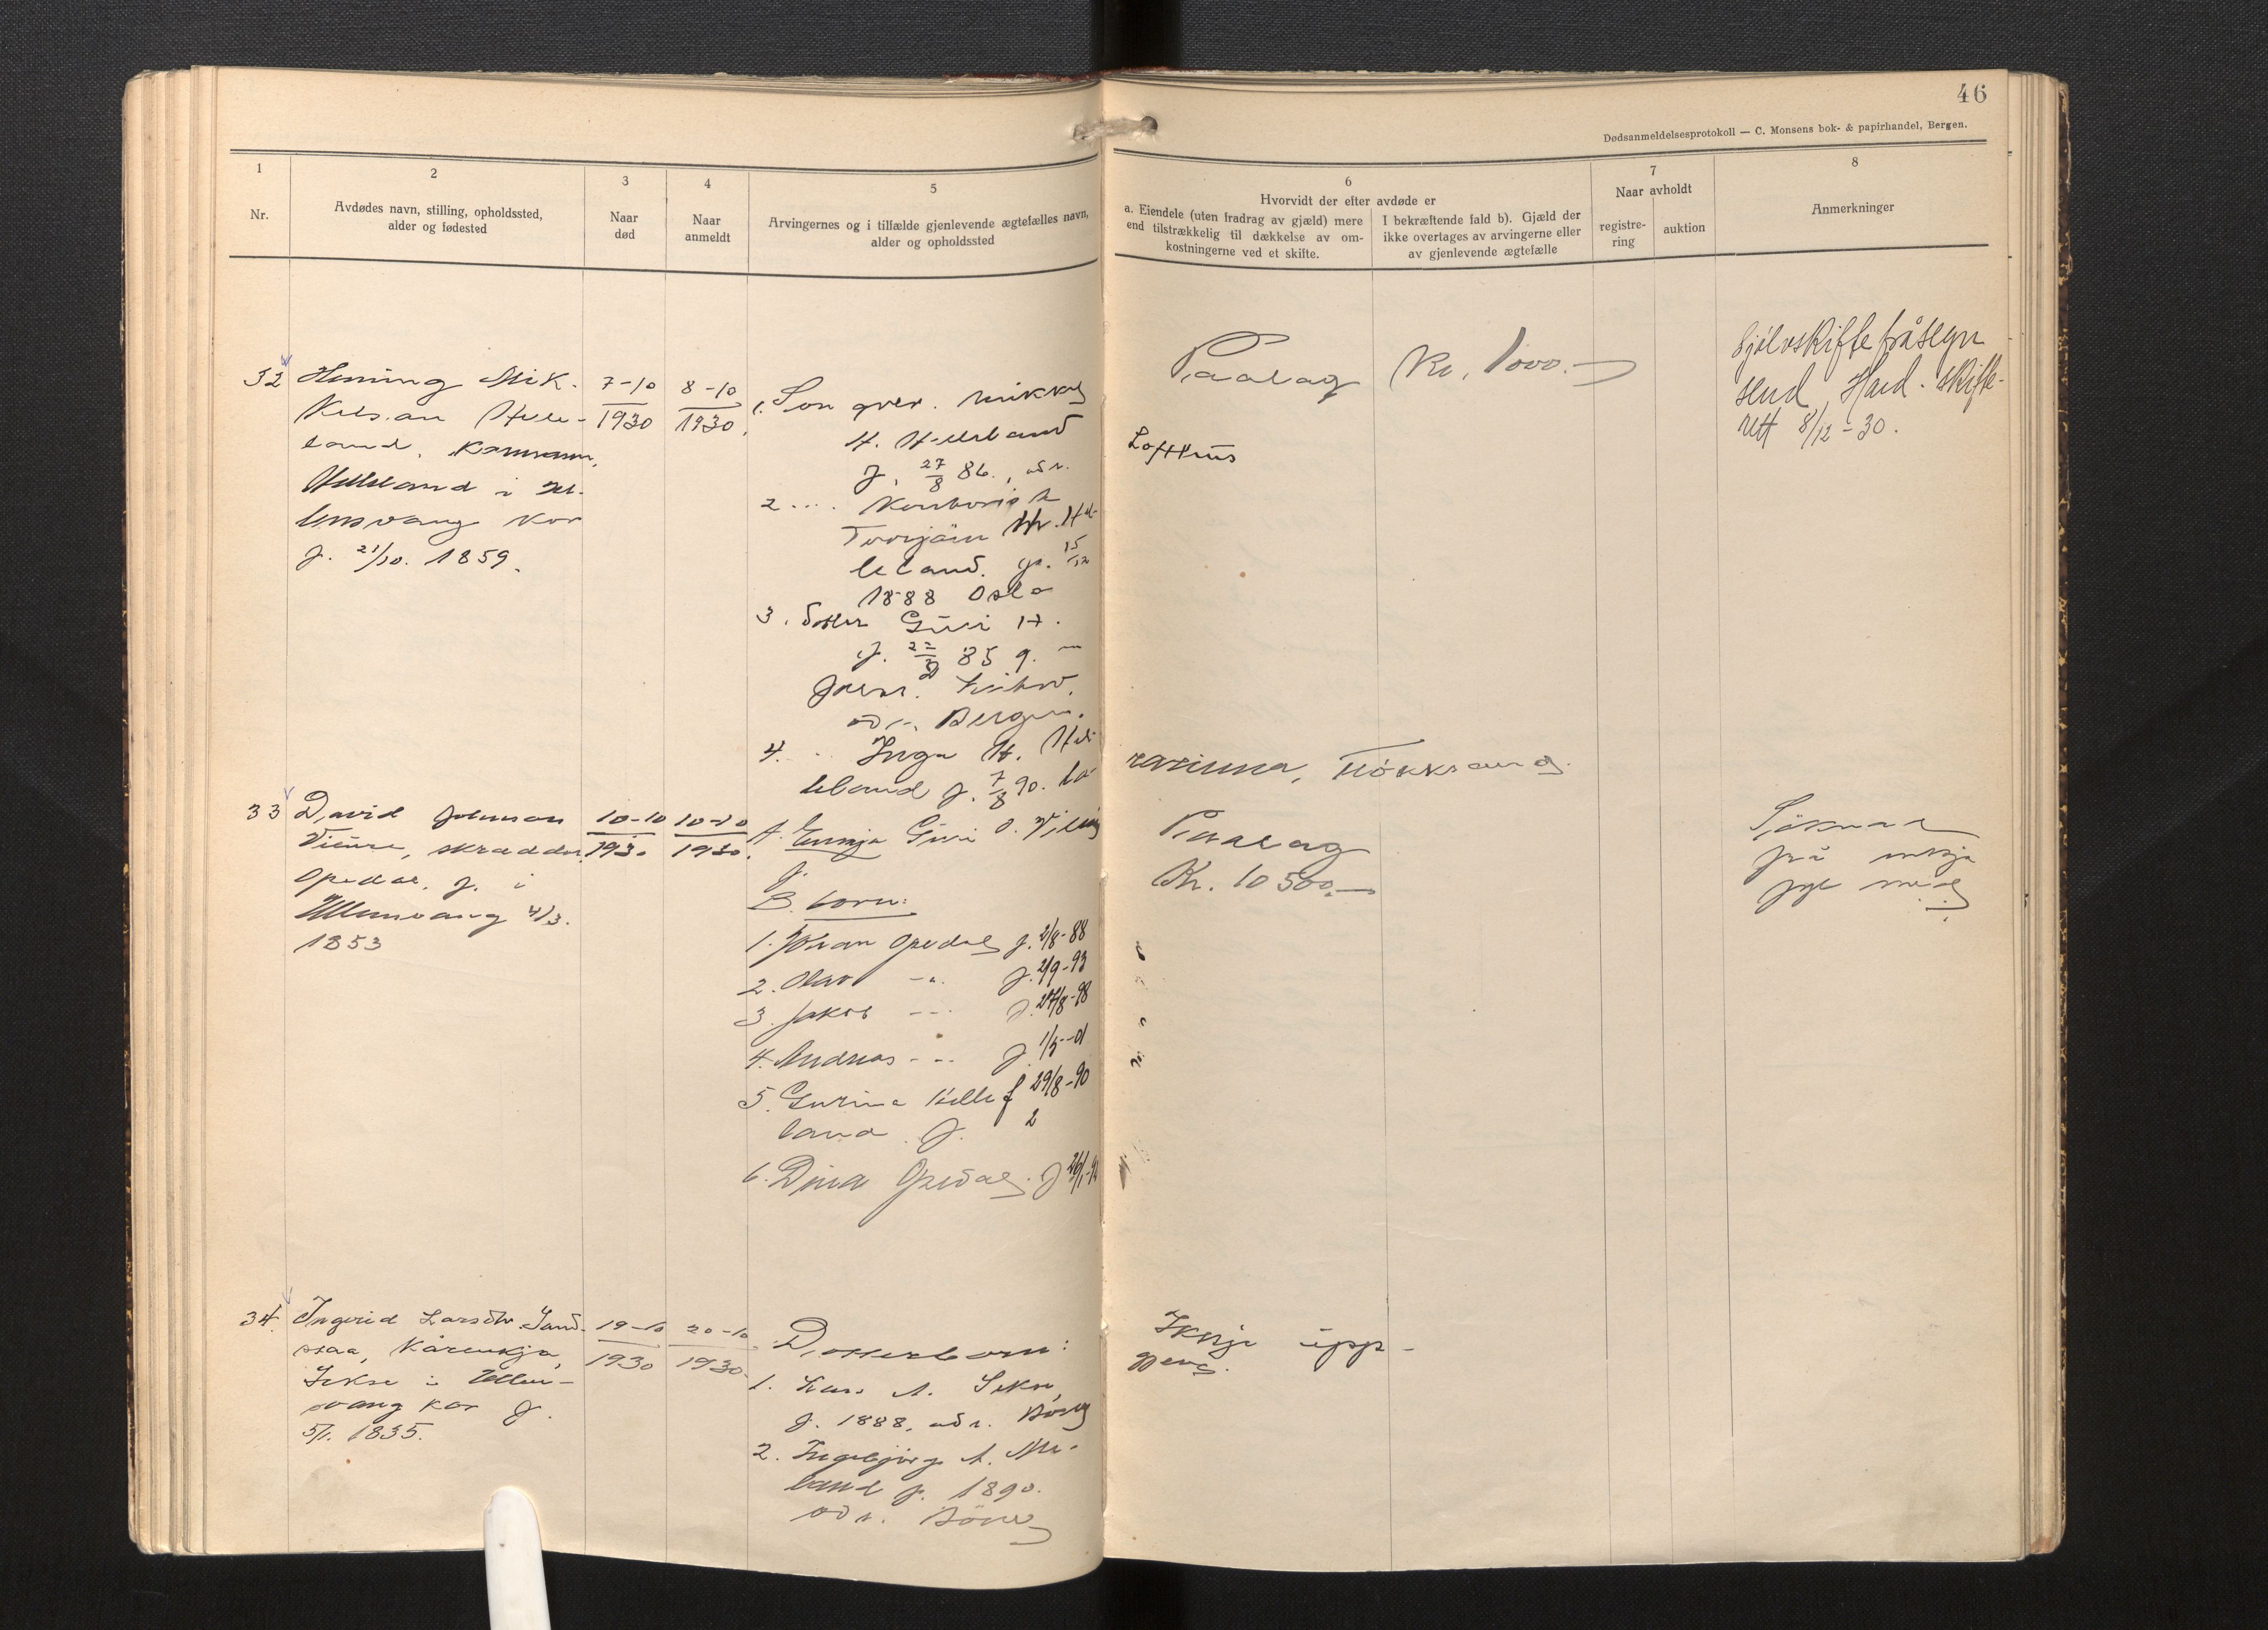 46
Dødsanmeldelsesprotokoll — C. Monsens bok- & papirhandel, Bergen.
1
Nr.
2
Avdødes navn, stilling, opholdssted,
alder og fødested
3
Naar
død
4
Naar
anmeldt
5
Arvingernes og i tilfælde gjenlevende ægtefælles navn,
alder og opholdssted
6
Hvorvidt der efter avdøde er
a. Eiendele (uten fradrag av gjæld) mere
end tilstrækkelig til dækkelse av om-
kostningerne ved et skifte.
I bekræftende fald b). Gjæld der
ikke overtages av arvingerne eller
av gjenlevende ægtefælle
7
Naar avholdt
registre-
ring
auktion
8
Anmerkninger
32
Heming Mik-
kelsan Helle-
land, Kårmann,
Helleland i Ul-
lensvang kor
f. 21/10. 1859.
7-10
1930
8-10
1930.
1. Son gver. Mikkel
H. Helleland
f. 27/8 86.
2 .... Kontorist
Torbjørn Hr. Hel-
leland. f. 15/12
1888 Oslo
3. dotter Guri H.
f. 85 g.
Bergen.
4. .. Inga H. Hel-
leland f. 7/8 90. læ-
Paalag
Kr. 1000.-
Lofthus
rarinna,
Sjølvskiftefråsegn
send Hard. skifte-
rett 8/12-30.
33
David Johnson
Vikøre, skreddar,
Opedal, f. i
Ullensvang 4/3.
1853
10-10
1930
10-10
1930.
A. Enkja Guri O. Vikøre
f.
B. born:
1. Johan Opedal f. 2/8-88
2. Olav -"- f. 2/9-93
3. Jakob -"- f. 27/8-98
4. Andreas -"- f. 1/5-01
5. Gurina Helle f 29/8-90
land f. 2
6. Dina Opedal f 26/1-
Paalag
Kr. 10 500.-
Søknad
frå enkja
34.
Ingerid Larsdtr. Sand-
staa, Kårenkja,
Sekse i Ullen-
svang kor f.
5/1. 1835.
19-10
1930
20-10
1930.
Dotterborn:
1. Lars A. Sekse,
f. 1888, adr. Børve
2. Ingebjørg A. Me-
land f. 1890.
adr. Børve
Ikkje upp-
gjeve.